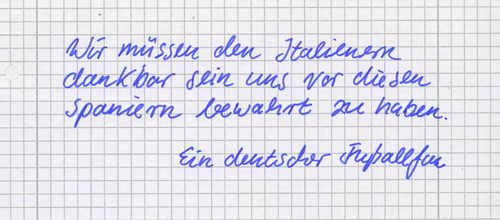 Wir müssen den Italienern
dankbar sein uns vor diesen
Spaniern bewahrt zu haben.
Ein deutscher Fußballfan